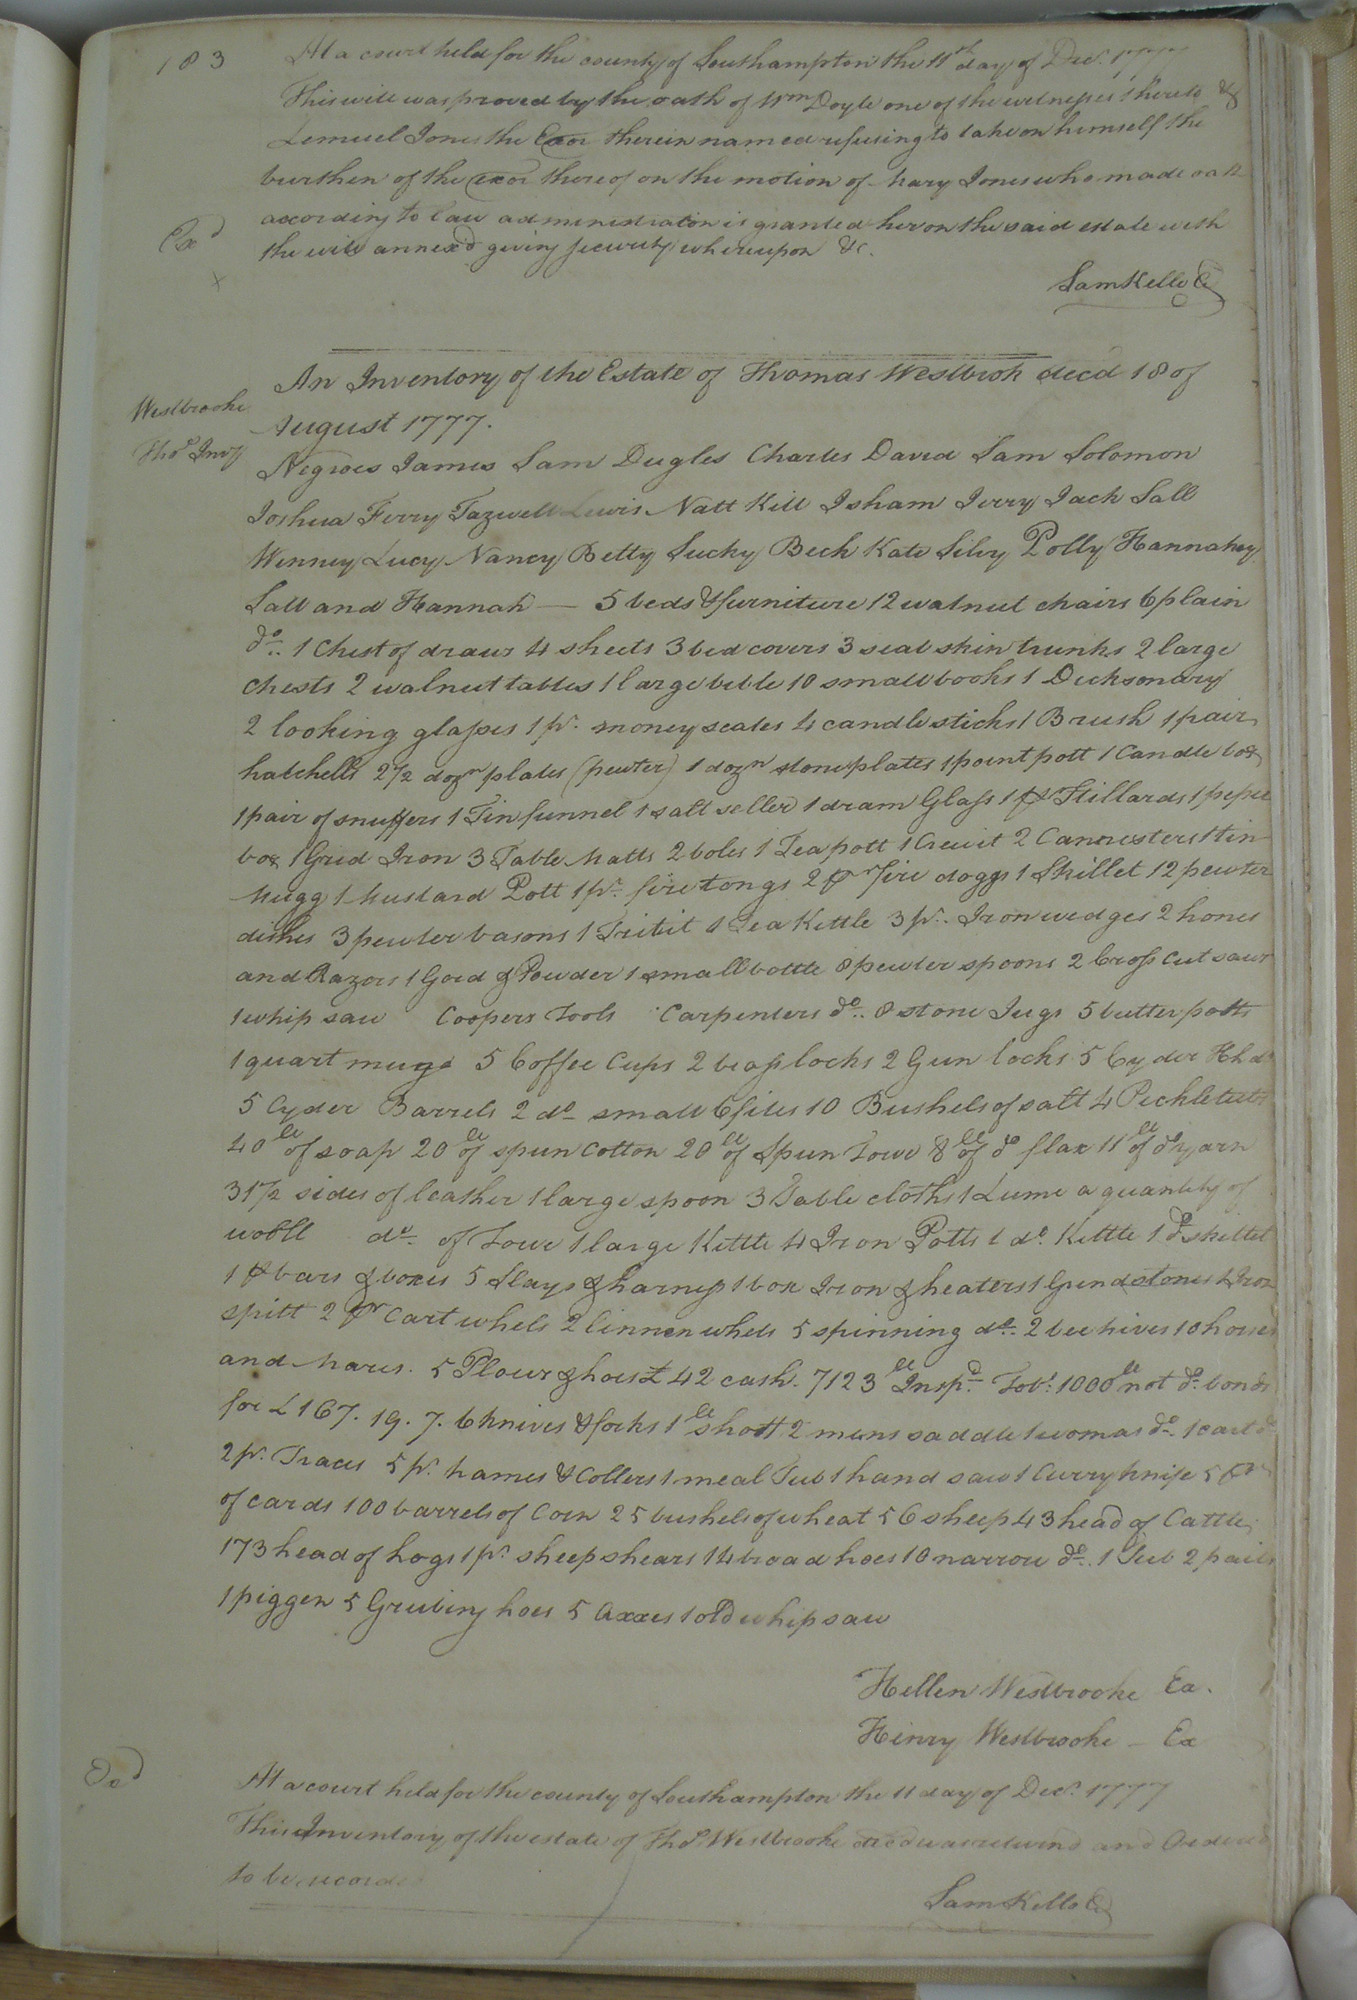 183
At a court held for the county of Southampton the 11th day of Decr. 1777
This will was proved by the oath of Wm Doyle one of the witnesses thereto &
Lemuel Jones the Exor therein named refusing to take on himself the
burthen of the exor thereof on the motion of Mary Jones who made oath
according to law administration is granted her on the said estate with
Exd
the will annexd giving security whereupon &c.
x
Sam Kello C
An Inventory of the Estate of Thomas Westbrok decd 18 of
August 1777.
Westbrooke
Thos Invy
Negroes James Sam Dugles Charles David Sam Solomon
Joshua Ferry Tazwell Lewis Natt Kill Isham Jerry Jack Sall
Wenney Lucy Nancy Betty Sucky Beck Kate Silvy Polly Hannahy
Sall and Hannah — 5 beds & furniture 12 walnut chairs 6 plain
do. 1 Chest of draws 4 sheets 3 bed covers 3 seal skin trunks 2 large
chests 2 walnut tables 1 large bible 10 small books 1 Dicksonary
2 looking glasses 1 pr. money scales 4 candlesticks 1 Brush 1 pair
hatchells 2 1/2 dozn plates (pewter) 1 dozn stone plates 1 point pott 1 Candle box
1 pair of snuffers 1 Tin funnel 1 salt seller 1 dram Glass 1 pr Stillards 1 peper
box 1 Grid Iron 3 Table Matts 2 boles 1 Tea pott 1 Cruit 2 Cannesters 1 tin
Mugg 1 Mustard Pott 1 pr. fire tongs 2 pr fire doggs 1 Skillet 12 pewter
dishes 3 pewter basons 1 Tribit 1 Tea Kettle 3 pr. Iron wedges 2 hones
and Razors 1 Gord & Powder 1 small bottle 8 pewter spoons 2 Cross cut saws
1 whip saw Coopers Tools Carpenters do. 8 stone Jugs 5 butter potts
1 quart mugs 5 Coffee Cups 2 brass locks 2 Gun locks 5 Cyder Hhds
5 Cyder Barrels 2 do small 6 files 10 Bushels of salt 4 Peckle tubs
40 lb of soap 20 lb of spun Cotton 20 lb of Spun Towe 8 lb of do flax 11 lb of do yarn
31 1/2 sides of leather 1 large spoon 3 Table cloths 1 Lume a quantity of
wooll do. of Towe 1 large Kettle 4 Iron Potts 1 do. Kettle 1 do skillet
1 pr bars & boxes 5 Slays & harness 1 box Iron & heaters 1 Grindstones 1 Iron
spitt 2 pr Cart whels 2 linnen whels 5 spinning do. 2 bee hives 10 horses
and Mares. 5 Plows & hoes £ 42 cash. 7123 lb Inspd. Tobo. 1000 lb not do. bonds
for £ 167. 19. 7. 6 knives & forks 1 lb shott 2 mens saddle 1 womas do. 1 cart do
2 pr. Traces 5 pr. hames & Collers 1 meal Tub 1 hand saw 1 Curry knife 5 prs
of cards 100 barrels of Corn 25 bushels of wheat 56 sheep 43 head of Cattle
173 head of hogs 1 pr. sheep shears 14 broad hoes 10 narrow do. 1 Tub 2 pails
1 piggen 5 Grubing hoes 5 Axxes 1 old whip saw
Hellen Westbrooke Ex.
Henry Westbrooke — Ex
Exd
At a court held for the county of Southampton the 11 day of Decr. 1777
This Inventory of the estate of Thos. Westbrooke decd was returnd and Ordered
to be recorded
Sam Kello C